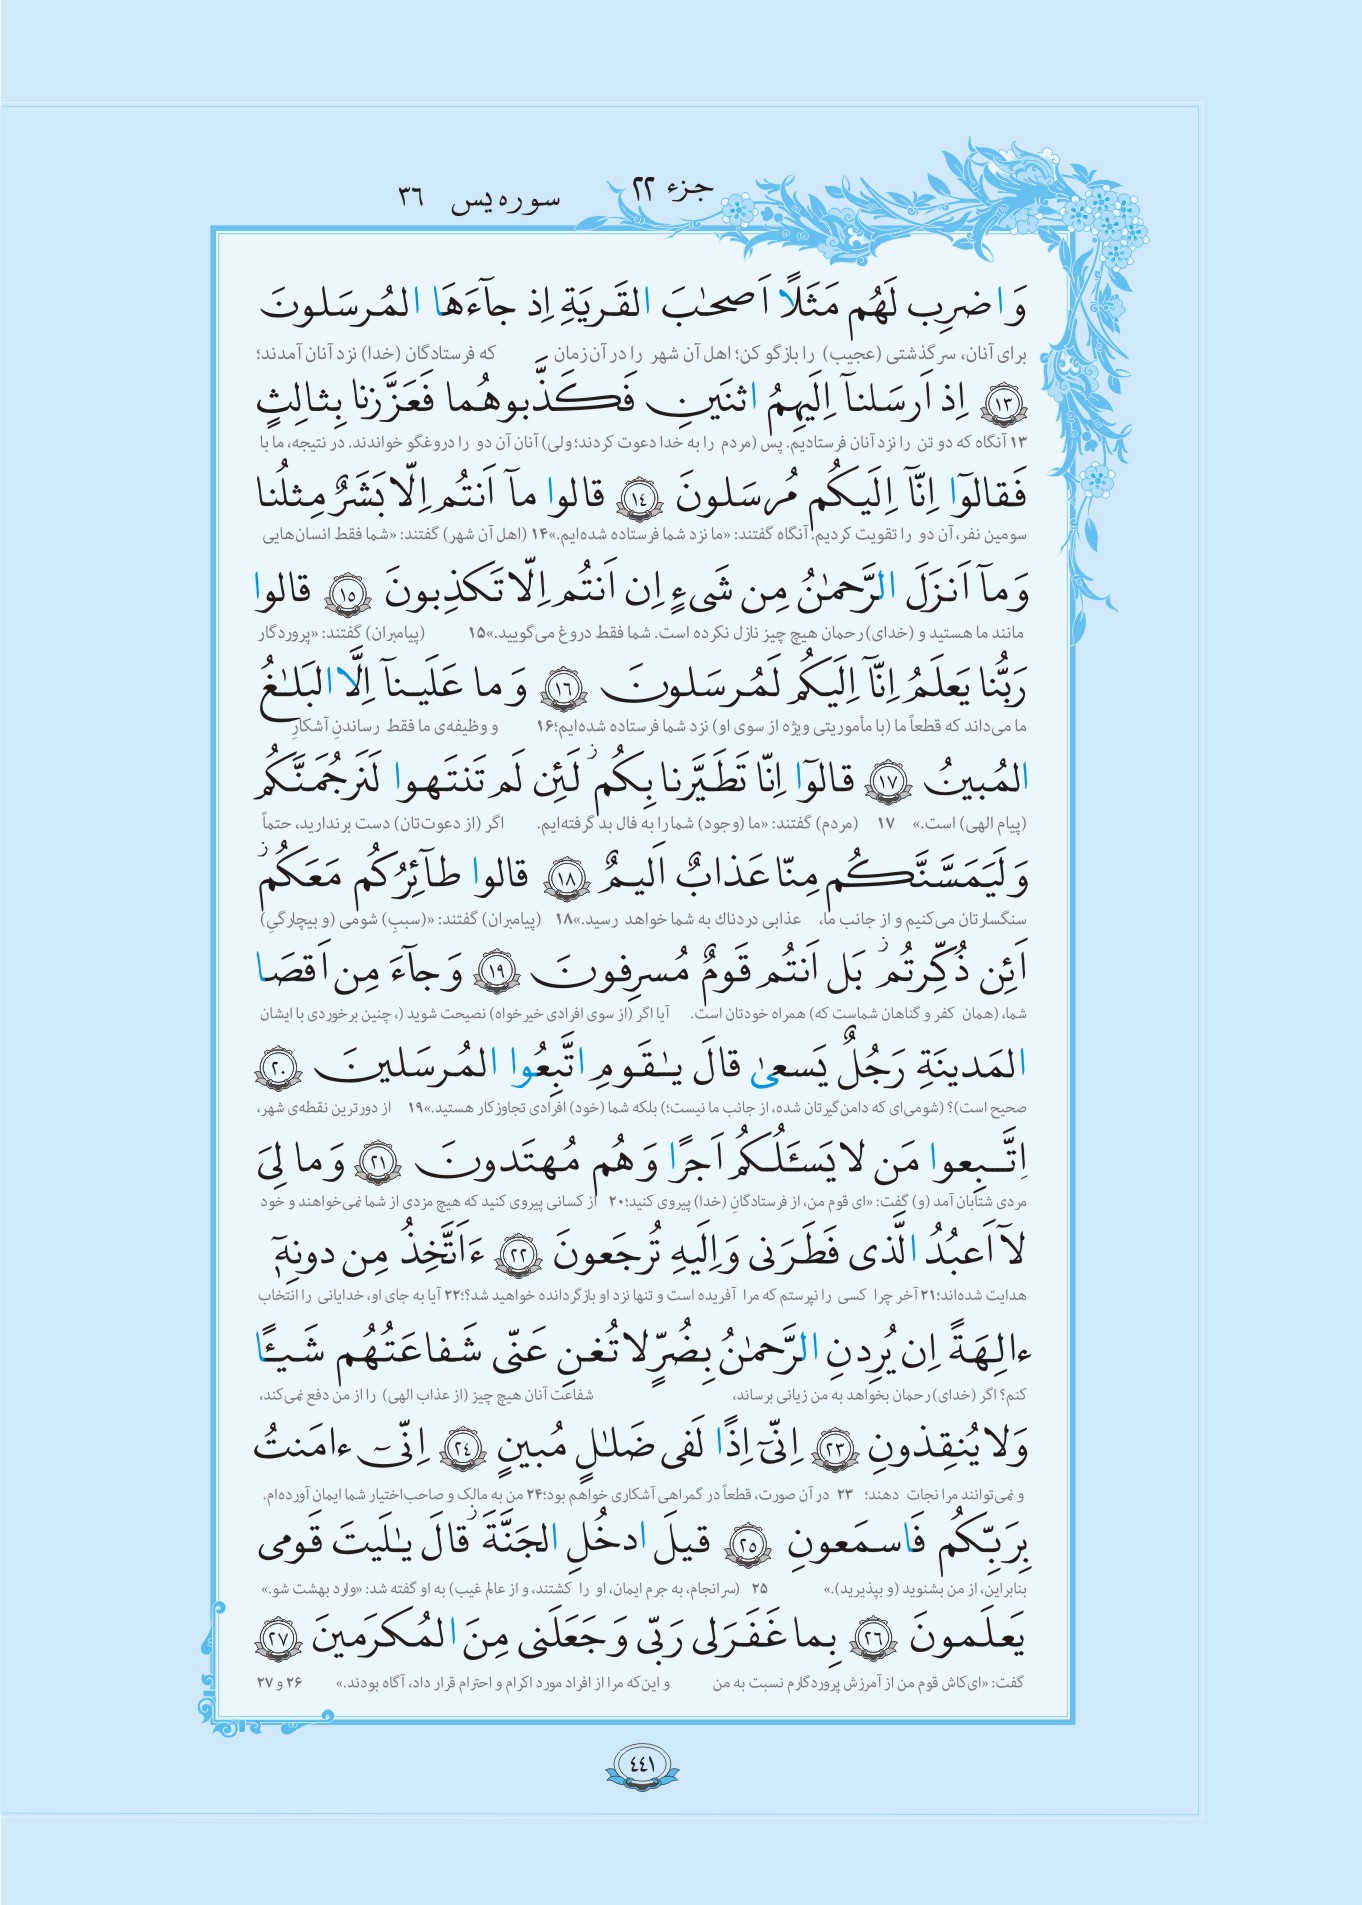 جزء ۲۲
سوره یس ۳۶
وَاضرِب لَهُم مَثَلًا اَصحٰبَ القَریَةِ اِذ جآءَهَا المُرسَلونَ
برای آنان، سرگذشتی (عجیب) را بازگو کن؛ اهل آن شهر را در آن زمان که فرستادگان (خدا) نزد آنان آمدند؛
﴿١٣﴾ اِذ اَرسَلنآ اِلَیهِمُ اثنَینِ فَكَذَّبوهُما فَعَزَّزنا بِثالِثٍ
۱۳ آنگاه که دو تن را نزد آنان فرستادیم. پس (مردم را به خدا دعوت کردند؛ ولی) آنان آن دو را دروغگو خواندند. در نتیجه، ما با
فَقالوٓا اِنّآ اِلَیكُم مُرسَلونَ ﴿١٤﴾ قالوا مآ اَنتُم اِلّا بَشَرٌ مِثلُنا
سومین نفر، آن دو را تقویت کردیم. آنگاه گفتند: «ما نزد شما فرستاده شده‌ایم.» ۱۴ (اهل آن شهر) گفتند: «شما فقط انسان‌هایی
وَمآ اَنزَلَ الرَّحمٰنُ مِن شَیءٍ اِن اَنتُم اِلّا تَكذِبونَ ﴿١٥﴾ قالوا
مانند ما هستید و (خدای) رحمان هیچ چیز نازل نکرده است. شما فقط دروغ می‌گویید.» ۱۵ (پیامبران) گفتند: «پروردگار
رَبُّنا یَعلَمُ اِنّآ اِلَیكُم لَمُرسَلونَ ﴿١٦﴾ وَما عَلَینآ اِلَّا البَلـٰغُ
ما می‌داند که قطعاً ما (با مأموریتی ویژه از سوی او) نزد شما فرستاده شده‌ایم؛ ۱۶ و وظیفه‌ی ما فقط رساندنِ آشکارِ
المُبینُ ﴿١٧﴾ قالوٓا اِنّا تَطَیَّرنا بِكُم ز لَئِن لَم تَنتَهوا لَنَرجُمَنَّكُم
(پیام الهی) است.» ۱۷ (مردم) گفتند: «ما (وجود) شما را به فال بد گرفته‌ایم. اگر (از دعوت‌تان) دست برندارید، حتماً
وَلَیَمَسَّنَّكُم مِنّا عَذابٌ اَلیمٌ ﴿١٨﴾ قالوا طآئِرُكُم مَعَكُم ز
سنگسارتان می‌کنیم و از جانب ما، عذابی دردناك به شما خواهد رسید.» ۱۸ (پیامبران) گفتند: «(سببِ) شومی (و بیچارگیِ)
اَئِن ذُكِّرتُم ز بَل اَنتُم قَومٌ مُسرِفونَ ﴿١٩﴾ وَجآءَ مِن اَقصَا
شما، (همان کفر و گناهان شماست که) همراه خودتان است. آیا اگر (از سوی افرادی خیرخواه) نصیحت شوید (، چنین برخوردی با ایشان
المَدینَةِ رَجُلٌ یَسعیٰ قالَ یـٰقَومِ اتَّبِعُوا المُرسَلینَ ﴿٢٠﴾
صحیح است)؟ (شومی‌ای که دامن‌گیرتان شده، از جانب ما نیست؛) بلکه شما (خود) افرادی تجاوزکار هستید.» ۱۹ از دورترین نقطه‌ی شهر،
اِتَّبِعوا مَن لا یَسـَٔلُكُم اَجرًا وَهُم مُهتَدونَ ﴿٢١﴾ وَما لِیَ
مردی شتابان آمد (و) گفت: «ای قوم من، از فرستادگانِ (خدا) پیروی کنید؛ ۲۰ از کسانی پیروی کنید که هیچ مزدی از شما نمی‌خواهند و خود
لآ اَعبُدُ الَّذی فَطَرَنی وَاِلَیهِ تُرجَعونَ ﴿٢٢﴾ ءَاَتَّخِذُ مِن دونِهٖٓ
هدایت شده‌اند؛ ۲۱ آخر چرا کسی را نپرستم که مرا آفریده است و تنها نزد او بازگردانده خواهید شد؟؛ ۲۲ آیا به جای او، خدایانی را انتخاب
ءالِهَةً اِن یُرِدنِ الرَّحمٰنُ بِضُرٍّ لا تُغنِ عَنّی شَفاعَتُهُم شَیـًٔا
کنم؟ اگر (خدای) رحمان بخواهد به من زیانی برساند، شفاعت آنان هیچ چیز (از عذاب الهی) را از من دفع نمی‌کند،
وَلا یُنقِذونِ ﴿٢٣﴾ اِنّیٓ اِذًا لَفی ضَلـٰلٍ مُبینٍ ﴿٢٤﴾ اِنّیٓ ءامَنتُ
و نمی‌توانند مرا نجات دهند؛ ۲۳ در آن صورت، قطعاً در گمراهی آشکاری خواهم بود؛ ۲۴ من به مالک و صاحب‌اختیار شما ایمان آورده‌ام.
بِرَبِّكُم فَاسمَعونِ ﴿٢٥﴾ قیلَ ادخُلِ الجَنَّةَ ز قالَ یـٰلَیتَ قَومی
بنابراین، از من بشنوید (و بپذیرید).» ۲۵ (سرانجام، به جرم ایمان، او را کشتند، و از عالم غیب) به او گفته شد: «وارد بهشت شو.»
یَعلَمونَ ﴿٢٦﴾ بِما غَفَرَلی رَبّی وَجَعَلَنی مِنَ المُكرَمینَ ﴿٢٧﴾
گفت: «ای‌کاش قوم من از آمرزش پروردگارم نسبت به من و این‌که مرا از افراد مورد اکرام و احترام قرار داد، آگاه بودند.» ۲۶ و ۲۷
٤٤١